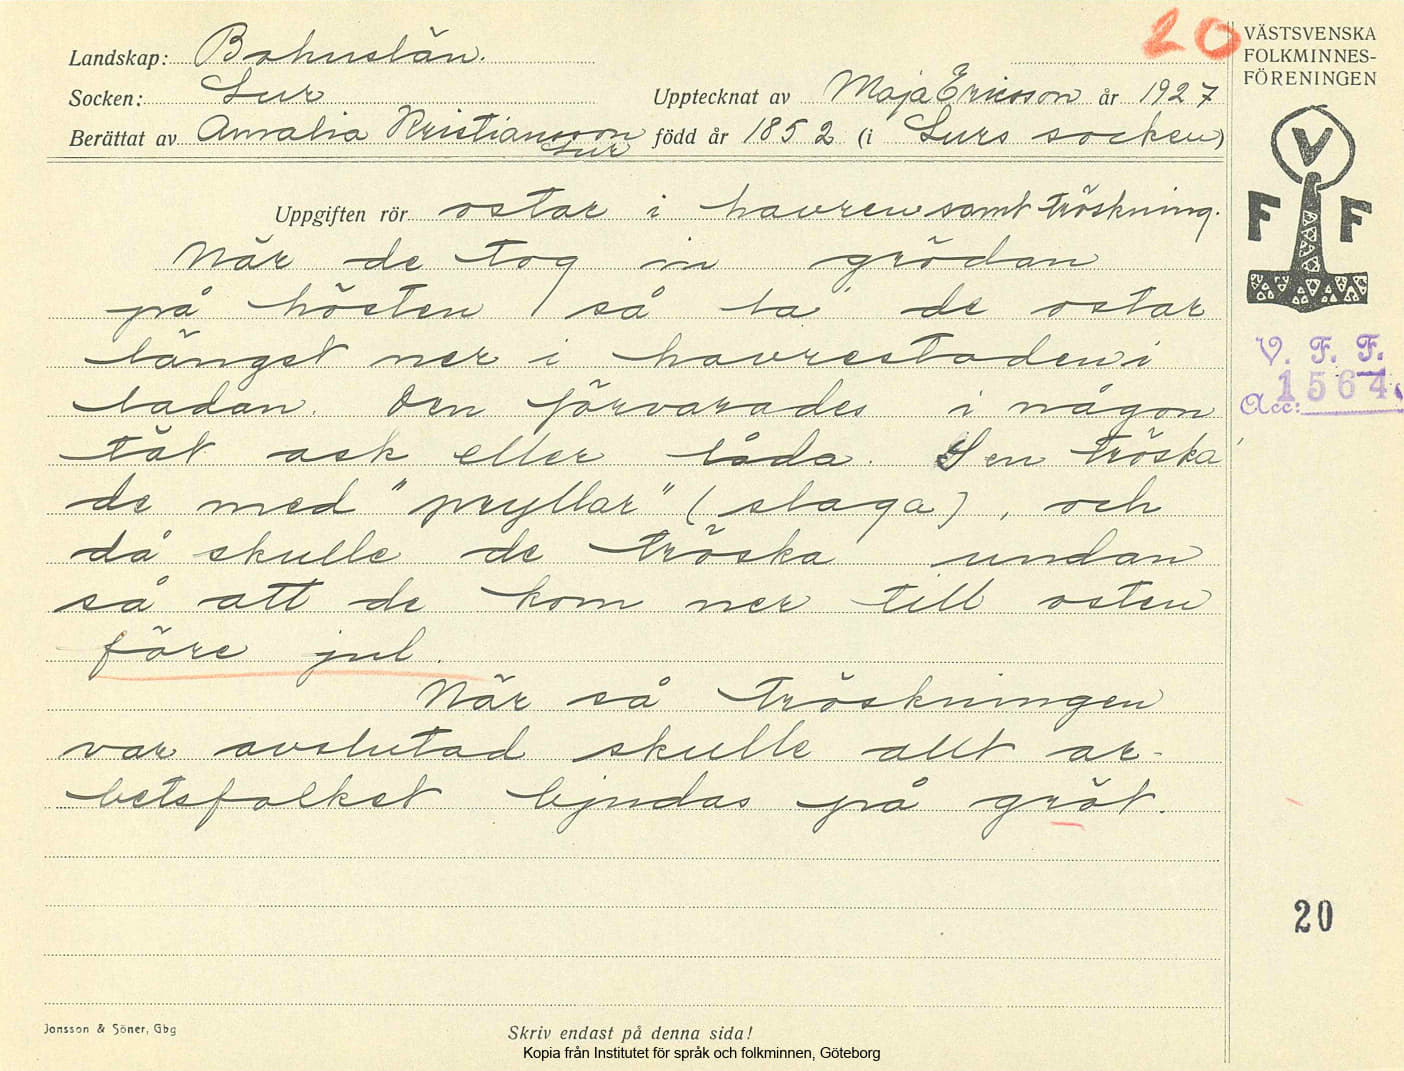 20
VÄSTSVENSKA
FOLKMINNES-
FÖRENINGEN
Landskap: Bohuslän.
Socken: Lur
Upptecknat av Maja Ericsson år 1927
Berättat av Amalia Kristiansson Lur född år 1852 (i Lurs socken)
V
F F
Uppgiften rör ostar i havren samt tröskning.
När de tog in grödan
på hösten så la de ostar
längst ner i havrestaden i
ladan. Den förvarades i någon
tät ask eller låda. Sen tröska
de med "pryllar" (slaga), och
då skulle de tröska undan
så att de kom ner till osten
före jul.
När så tröskningen
var avslutad skulle allt ar-
betsfolket bjudas på gröt.
V. F. F.
Acc: 1564
20
Jonsson & Söner, Gbg
Skriv endast på denna sida!
Kopia från Institutet för språk och folkminnen, Göteborg